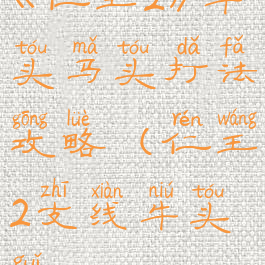 《仁王2》牛
tóu mǎ tóu dǎ fǎ
头马头打法
gōng lüè rén wáng
攻略（仁王
zhī xiàn niú tóu
2支线牛头